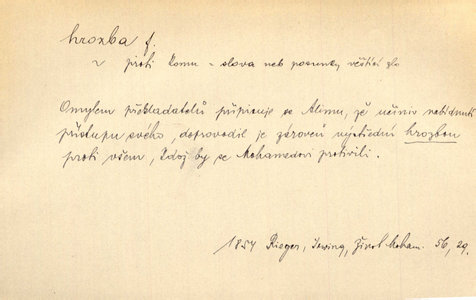 hrozba f.
proti komu – slova neb posunky věštící zlo
Omylem překladatelů připisuje se Alimu, že učiniv nabídnutí
přístupu svého, doprovodil je zároveň výstřední hrozbou
proti všem, kdož by se Mohamedovi protivili.
1854 Rieger, Irwing, Život Moham. 56, 29.